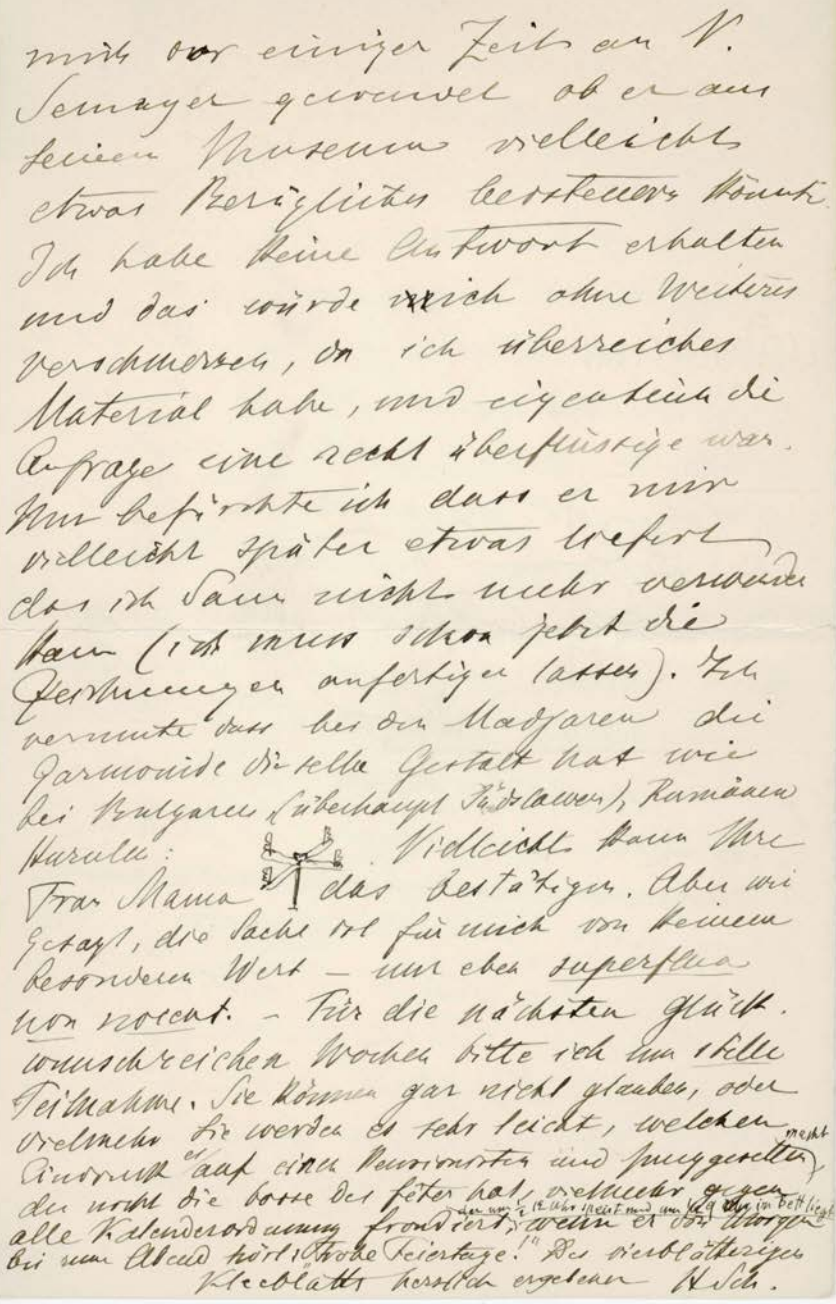 mich vor einiger Zeit an V.
Semayer gewendet ob er aus
seinem Museum vielleicht
etwas Bezügliches beisteuern könnte.
Ich habe keine Antwort erhalten
und das würde ich ohne Weiteres
verschmerzen, da ich überreiches
Material habe, und eigentlich die
Anfrage eine recht überflüssige war.
Nur befürchte ich dass er mir
vielleicht später etwas liefert
das ich dann nicht mehr verwenden
kann (ich muss schon jetzt die
Zeichnungen anfertigen lassen). Ich
vermute dass bei den Madjaren die
Garnwinde dieselbe Gestalt hat wie
bei Bulgaren (überhaupt Südslawen), Rumänen
Huzulen: Vielleicht kann Ihre
Frau Mama das bestätigen. Aber wie
gesagt, die Sache ist für mich von keinem
besonderen Wert – nur eben superflua
non nocent. – Für die nächsten glück-
wunschreichen Wochen bitte ich um stille
Teilnahme. Sie können gar nicht glauben, oder
vielmehr Sie werden es sehr leicht, welchen
Eindruck es auf einen Pensionisten und Junggesellen macht,
der nicht die bosse des fêtes hat, vielmehr gegen
alle Kalenderordnung frondiert, der um ½ 12 Uhr speist und um ½ 9 Uhr im Bett liegt, wenn er von Morgen
bis zum Abend hört: "Frohe Feiertage!" Des vierblätterigen
Kleeblatts herzlich ergebener H Sch.